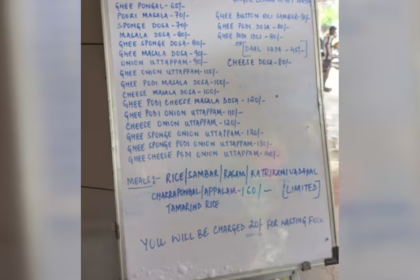 GHEE PONGAL - 60/-
POORI MASALA - 70/-
SPONGE DOSA - 70/-
MASALA DOSA - 80/-
GHEE SPONGE DOSA - 80/-
GHEE MASALA DOSA - 90/-
ONION UTTAPPAM - 90/-
GHEE ONION UTTAPPAM - 100/-
GHEE PODI MASALA DOSA - 100/-
CHEESE MASALA DOSA - 100/-
GHEE PODI CHEESE MASALA DOSA - 120/-
GHEE PODI ONION UTTAPPAM - 110/-
CHEESE ONION UTTAPPAM - 120/-
GHEE SPONGE ONION UTTAPPAM - 120/-
GHEE SPONGE PODI ONION UTTAPPAM - 130/-
GHEE CHEESE PODI ONION UTTAPPAM
GHEE BUTTON IDLI SAMBAR
GHEE PODI DOSA - 80/-
GHEE PODI IDLI - 80/-
CHEESE DOSA - 80/-
MEALS:- RICE/SAMBAR/RASAM/KATRIKAI VADAYAL
CHAKRAPONGAL/APPALAM - 160/- [LIMITED]
TAMARIND RICE
YOU WILL BE CHARGED 20/- FOR WASTING FOOD